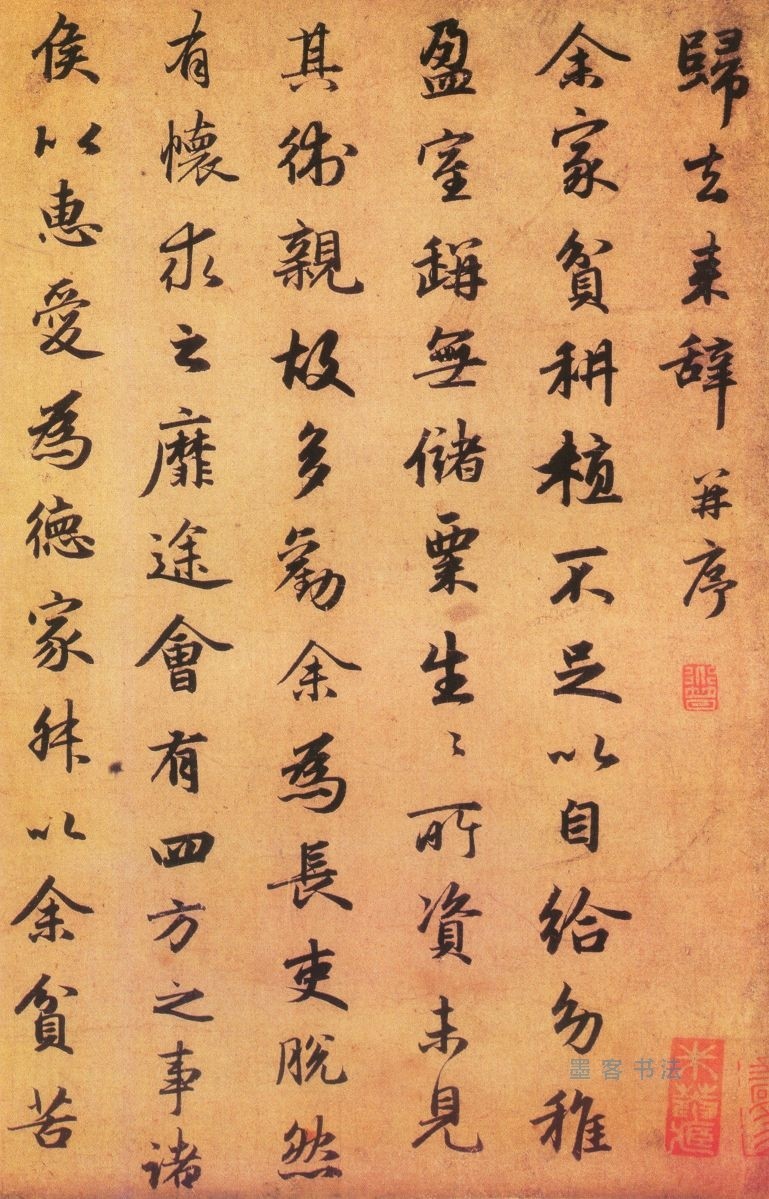 歸去来辞并序
余家貧耕植不足以自給幼稚
盈室缾無儲粟生〻所資未見
其術親故多勸余為長吏脫然
有懷求之靡途會有四方之事諸
侯以惠愛為德家叔以余貧苦
墨客书法